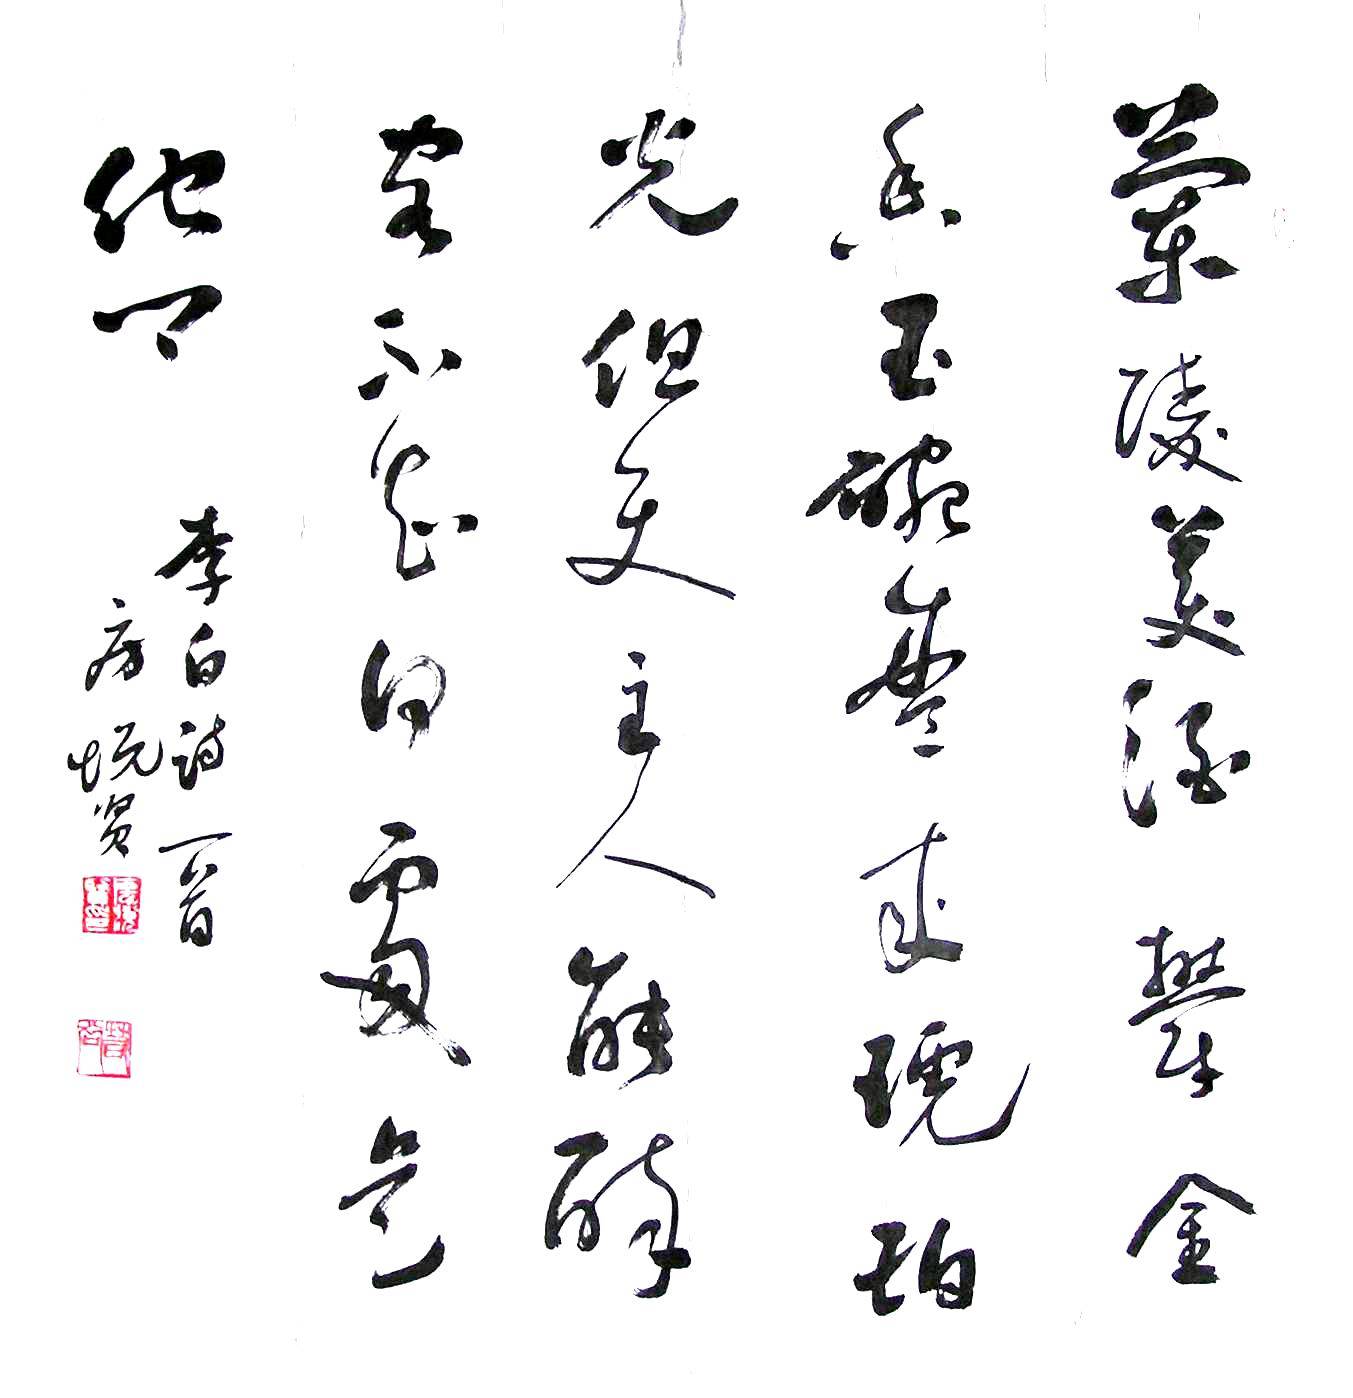 蘭陵美酒鬱金
香玉碗盛來琥珀
光但使主人能醉
客不知何處是
他鄉
李白詩一首
房悦贤